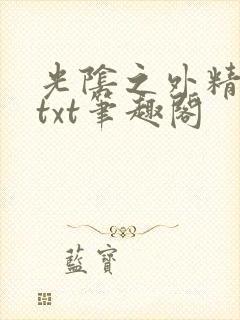 光陰之外精
txt筆趣閣
藍寶